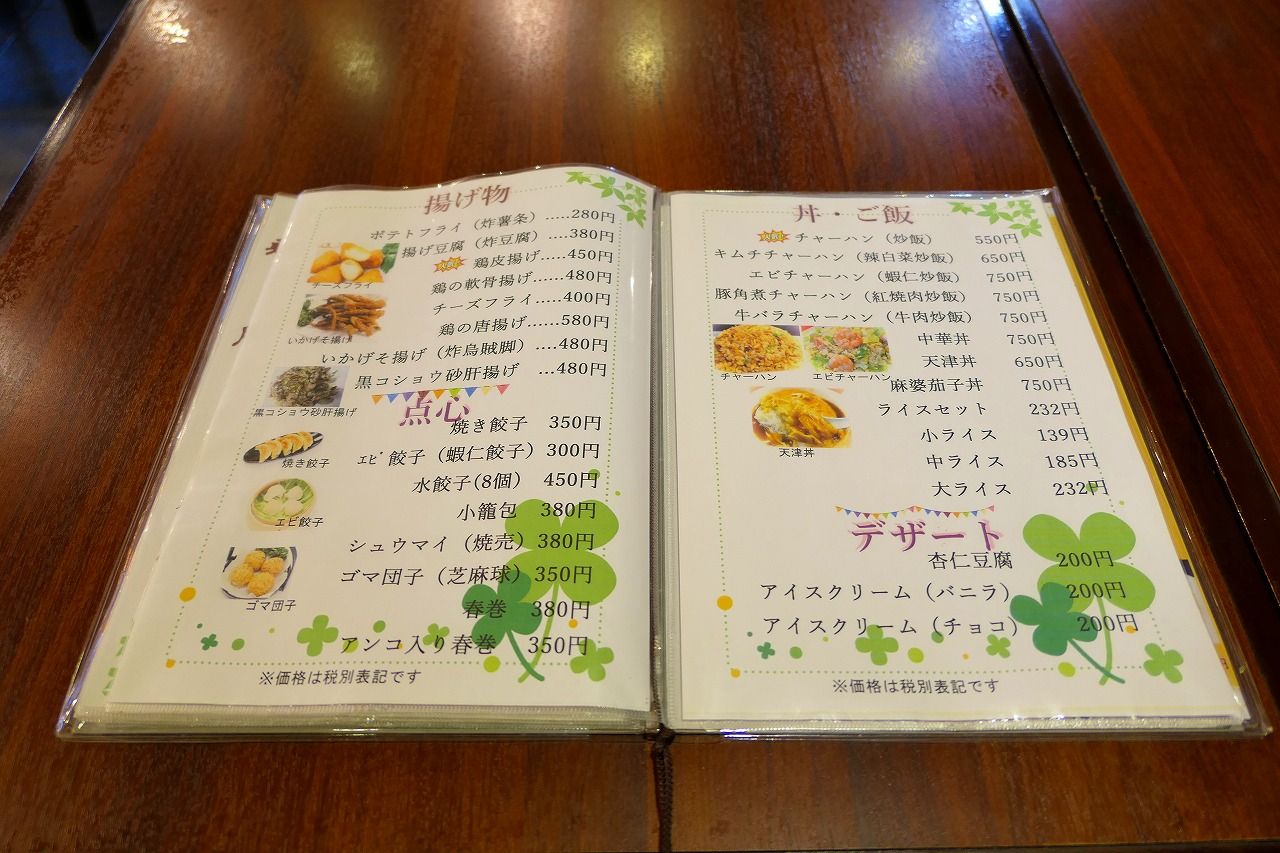 揚げ物
ポテトフライ（炸薯条）.....280円
揚げ豆腐（炸豆腐）....380円
鶏皮揚げ....450円
鶏の軟骨揚げ....480円
チーズフライ....400円
鶏の唐揚げ......580円
いかげそ揚げ（炸烏賊脚）....480円
黒コショウ砂肝揚げ ...480円
チーズフライ
いかげそ揚げ
黒コショウ砂肝揚げ
点心
焼き餃子 350円
エビ餃子（蝦仁餃子）300円
水餃子(8個) 450円
小籠包 380円
シュウマイ（焼売）380円
ゴマ団子（芝麻球）350円
春巻 380円
アンコ入り春巻 350円
焼き餃子
エビ餃子
ゴマ団子
※価格は税別表記です
丼・ご飯
チャーハン（炒飯） 550円
キムチチャーハン（辣白菜炒飯） 650円
エビチャーハン（蝦仁炒飯） 750円
豚角煮チャーハン（紅焼肉炒飯） 750円
牛バラチャーハン（牛肉炒飯） 750円
中華丼 750円
天津丼 650円
麻婆茄子丼 750円
ライスセット 232円
小ライス 139円
中ライス 185円
大ライス 232円
チャーハン
エビチャーハン
天津丼
デザート
杏仁豆腐 200円
アイスクリーム（バニラ） 200円
アイスクリーム（チョコ） 200円
※価格は税別表記です